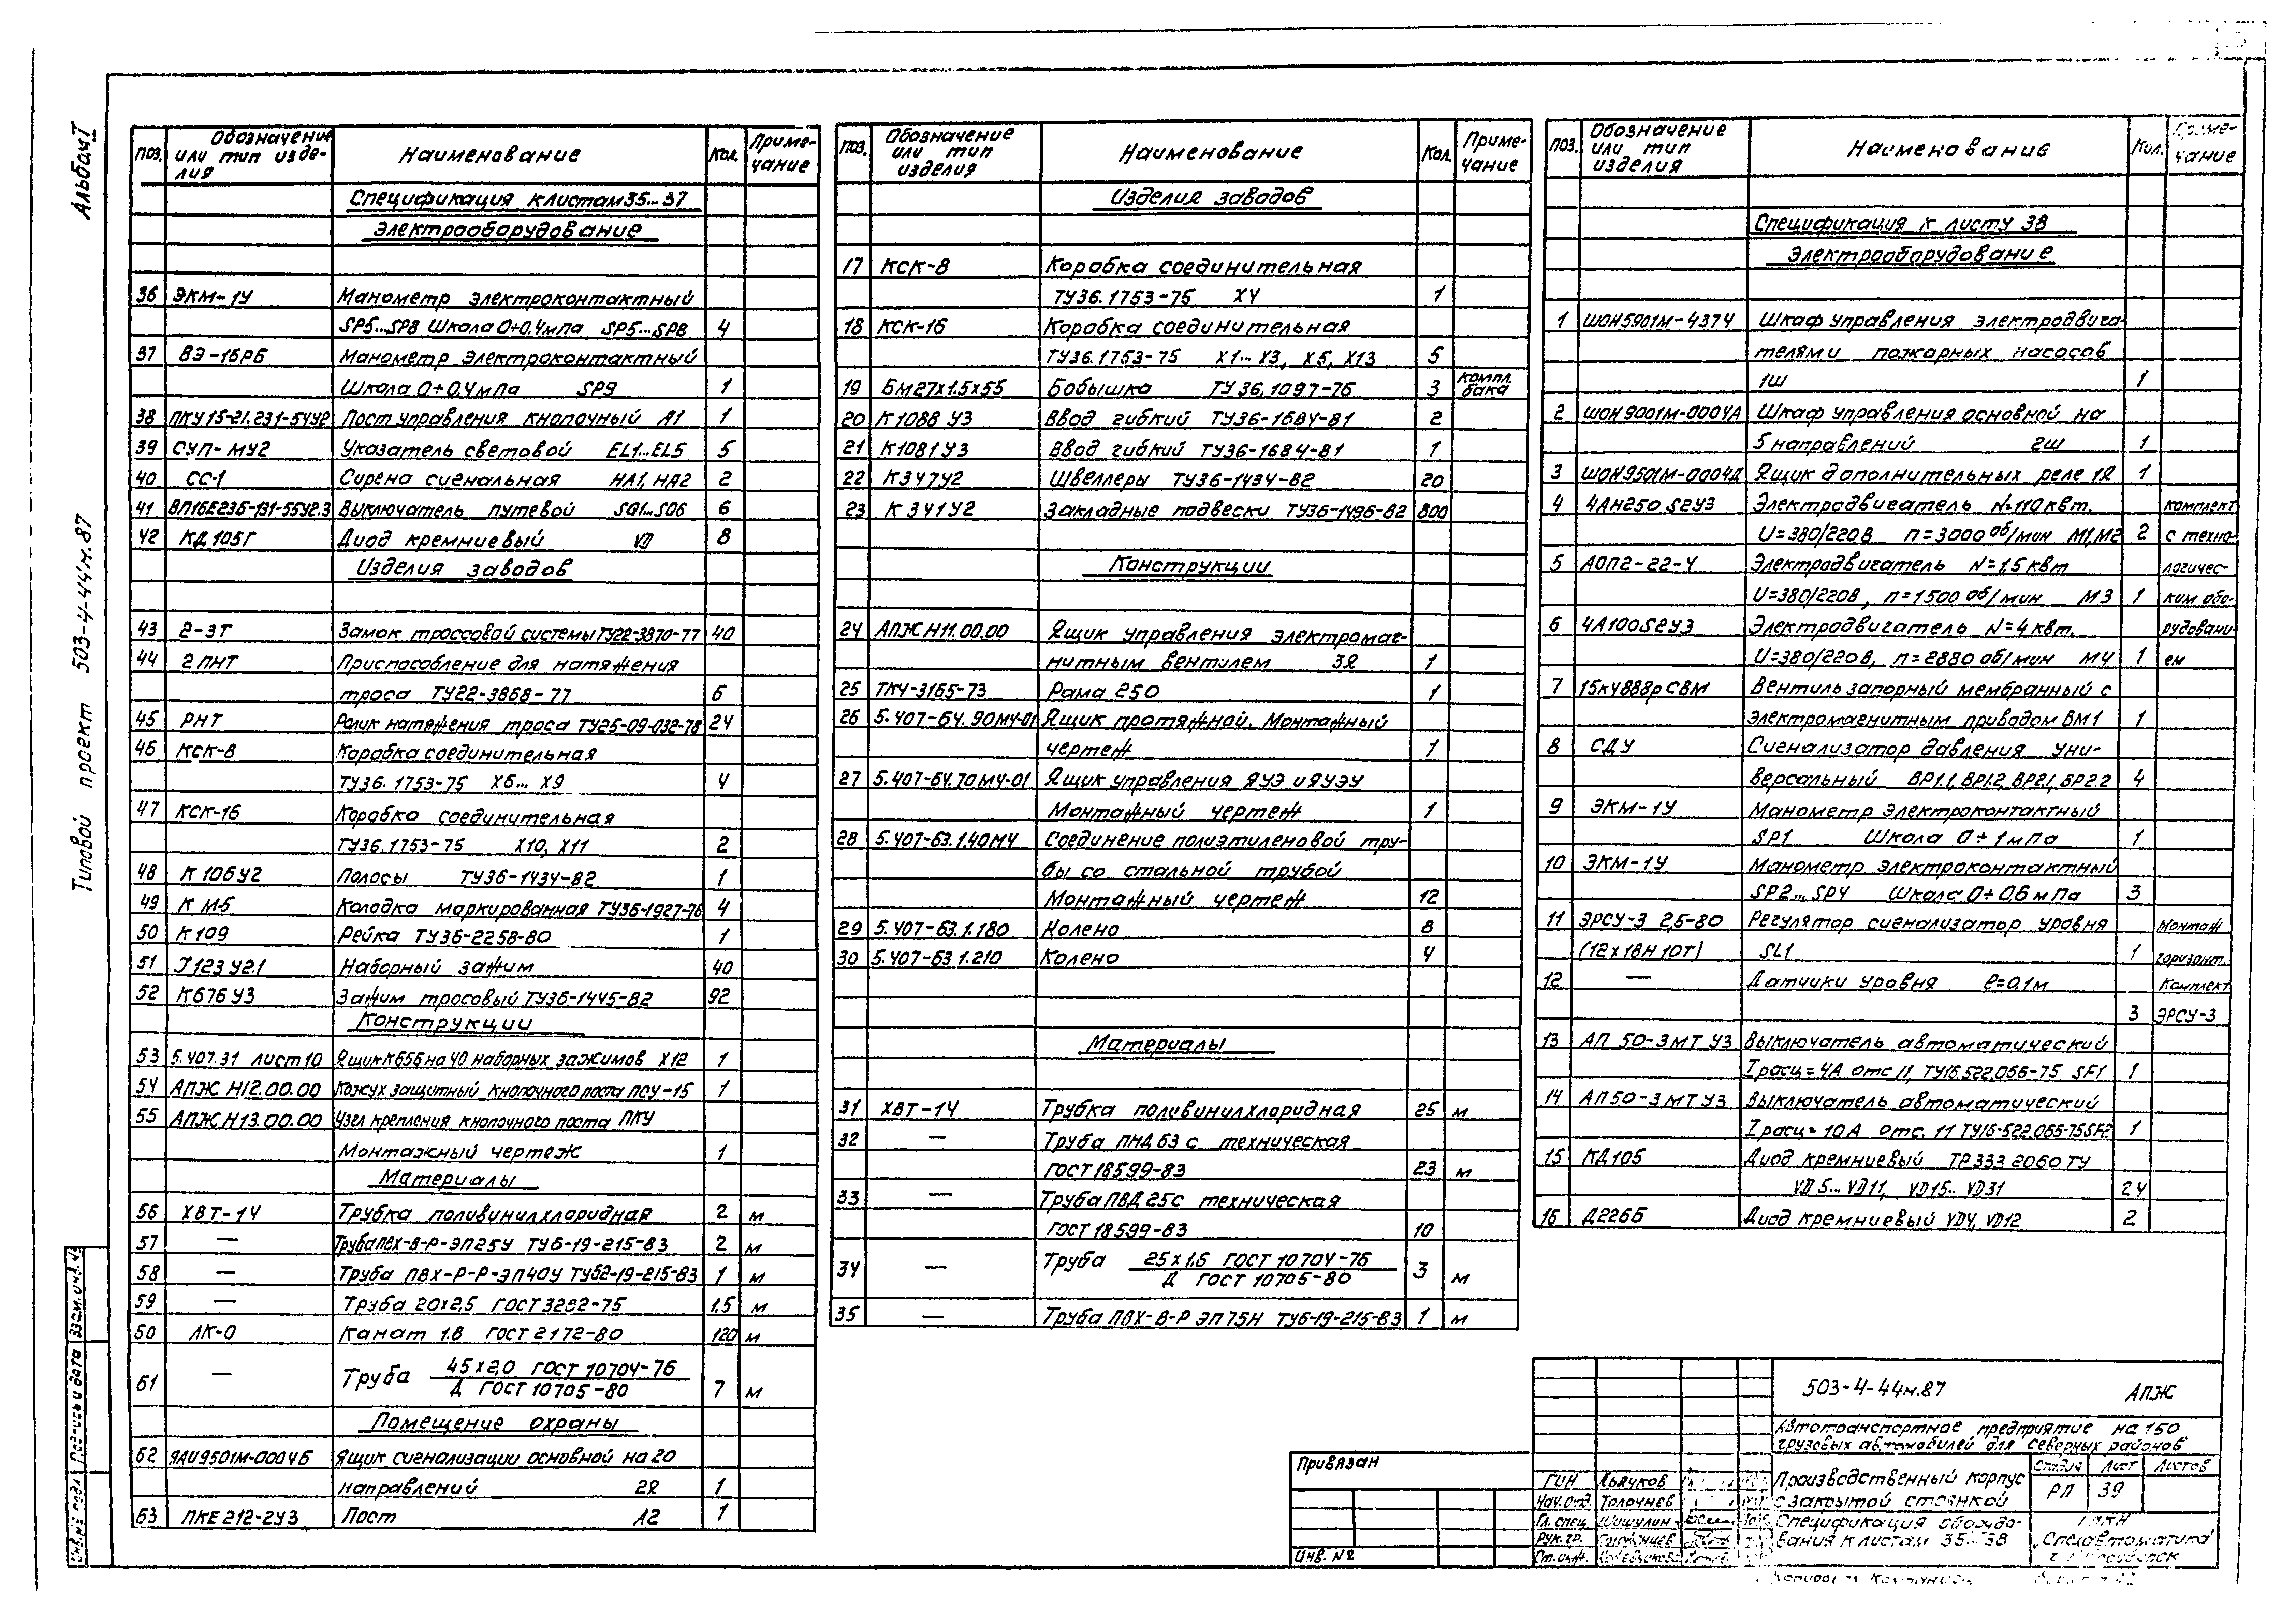 Альбом I
Типовой проект 503-4-44м.87
поз. Обозначение или тип изделия Наименование Кол. Примечание
Спецификация к листам 35...37
Электрооборудование
36 ЭКМ-1У Манометр электроконтактный
SP5...SP8 Шкала 0÷0.4мпа SP5...SP8 4
37 ВЭ-16РБ Манометр электроконтактный
Шкала 0÷0,4мпа SP9 1
38 ПКУ15-21.231-54У2 Пост управления кнопочный А1 1
39 СУП-МУ2 Указатель световой EL1...EL5 5
40 СС-1 Сирена сигнальная НА1, НА2 2
41 ВП16Е23Б-131-55У2.3 Выключатель путевой SQ1...SQ6 6
42 КД105Г Диод кремниевый VD 8
Изделия заводов
43 2-3Т Замок троссовой системы ТУ22-3870-77 40
44 2ПНТ Приспособление для натяжения
троса ТУ22-3868-77 6
45 РНТ Ролик натяжения троса ТУ25-09-032-78 24
46 КСК-8 Коробка соединительная
ТУ36.1753-75 Х6... Х9 4
47 КСК-16 Коробка соединительная
ТУ36.1753-75 Х10, Х11 2
48 К106У2 Полосы ТУ36-1434-82 1
49 КМ-5 Колодка маркированная ТУ36-1927-76 4
50 К109 Рейка ТУ36-2258-80 1
51 У123У2.1 Наборный зажим 40
52 К676У3 Зажим тросовый ТУ36-1445-82 92
Конструкции
53 5.407.31 лист 10 Ящик К656 на 40 наборных зажимов Х12 1
54 АПЖ Н12.00.00 Кожух защитный кнопочного поста ПСУ-15 1
55 АПЖ Н13.00.00 Узел крепления кнопочного поста ПКУ
Монтажный чертеж 1
Материалы
56 ХВТ-14 Трубка поливинилхлоридная 2 м
57 — Труба ПВХ-В-Р-ЭП25У ТУ6-19-215-83 2 м
58 — Труба ПВХ-Р-Р-ЭП40У ТУ62-19-215-83 1 м
59 — Труба 20х2,5 ГОСТ 3262-75 1,5 м
50 ЛК-0 Канат 1.8 ГОСТ 2172-80 120 м
61 — Труба 45х2,0 ГОСТ 10704-76
Д ГОСТ 10705-80 7 м
Помещение охраны
62 ЯАИ9501М-0004Б Ящик сигнализации основной на 20
направлений 2Я 1
63 ПКЕ 212-2У3 Пост А2 1
поз. Обозначение или тип изделия Наименование Кол. Примечание
Изделия заводов
17 КСК-8 Коробка соединительная
ТУ36.1753-75 Х4 1
18 КСК-16 Коробка соединительная
ТУ36.1753-75 Х1... Х3, Х5, Х13 5
19 БМ27х1.5х55 Бобышка ТУ 36.1097-76 3 компл. бака
20 К1088 У3 Ввод гибкий ТУ36-1684-81 2
21 К1081У3 Ввод гибкий ТУ36-1684-81 1
22 К347У2 Швеллеры ТУ36-1434-82 20
23 К341У2 Закладные подвески ТУ36-1496-82 800
Конструкции
24 АПЖ Н11.00.00 Ящик управления электромаг-
нитным вентилем 3Я 1
25 ТКЧ-3165-73 Рама 250 1
26 5.407-64.90МЧ-01 Ящик протяжной. Монтажный
чертеж 1
27 5.407-64.70МЧ-01 Ящик управления ЯУЭ и ЯУЭУ
Монтажный чертеж 1
28 5.407-63.1.40МЧ Соединение полиэтиленовой тру-
бы со стальной трубой
Монтажный чертеж 12
29 5.407-63.1.180 Колено 8
30 5.407-63 1.210 Колено 4
Материалы
31 ХВТ-14 Трубка поливинилхлоридная 25 м
32 — Труба ПНД 63 с техническая
ГОСТ 18599-83 23 м
33 — Труба ПВД 25С техническая
ГОСТ 18599-83 10
34 — Труба 25х1,6 ГОСТ 10704-76
Д ГОСТ 10705-80 3 м
35 — Труба ПВХ-В-Р ЭП75Н ТУ6-19-215-83 1 м
поз. Обозначение или тип изделия Наименование Кол. Примечание
Спецификация к листу 38
Электрооборудование
1 ШОН5901М-4374 Шкаф управления электродвига-
телями пожарных насосов
1Ш 1
2 ШОН9001М-0004А Шкаф управления основной на
5 направлений 2Ш 1
3 ШОН9501М-0004Д Ящик дополнительных реле 1Я 1
4 4АН250 S2У3 Электродвигатель N=110квт. комплект
U=380/220В n=3000 об/мин М1,М2 2 с техно-
5 АОП2-22-4 Электродвигатель N=1,5 квт логичес-
U=380/220В, n=1500 об/мин М3 1 ким обо-
6 4А100S2У3 Электродвигатель N=4 квт. рудовани-
U=380/220В, n=2880 об/мин М4 1 ем
7 15кч888р СВМ Вентиль запорный мембранный с
электромагнитным приводом ВМ1 1
8 СДУ Сигнализатор давления уни-
версальный ВР1.1, ВР1.2, ВР2.1, ВР2.2 4
9 ЭКМ-1У Манометр электроконтактный
SP1 Шкала 0÷1мпа 1
10 ЭКМ-1У Манометр электроконтактный
SP2... SP4 Шкала 0÷0,6мпа 3
11 ЭРСУ-3 2,5-80 Регулятор сигнализатор уровня монтаж
(12х18Н10Т) SL1 1 горизонт.
12 — Датчики уровня ℓ=0,1м Комплект
3 ЭРСУ-3
13 АП 50-3МТ У3 Выключатель автоматический
Iрасц=4А отс 11, ТУ16.522.066-75 SF1 1
14 АП50-3МТУ3 Выключатель автоматический
Iрасц=10А отс. 11 ТУ16-522.066-75 SF2 1
15 КД105 Диод кремниевый ТР333 2060 ТУ
VD5... VD11, VD15.. VD31 24
16 Д226Б Диод кремниевый VD4, VD12 2
503-4-44м.87 АПЖ
Автотранспортное предприятие на 150
грузовых автомобилей для северных районов
Производственный корпус
с закрытой стоянкой
Стадия Лист Листов
РП 39
Спецификация оборудо-
вания к листам 35...38
Спецавтоматика
ГИП Дьячков
Нач.отд. Толочнев
Гл. спец. Шишулин
Рук. гр.
Ст. инж.
Привязан
Инв. №
Взам. инв. №
Подпись и дата
Инв. № подл.